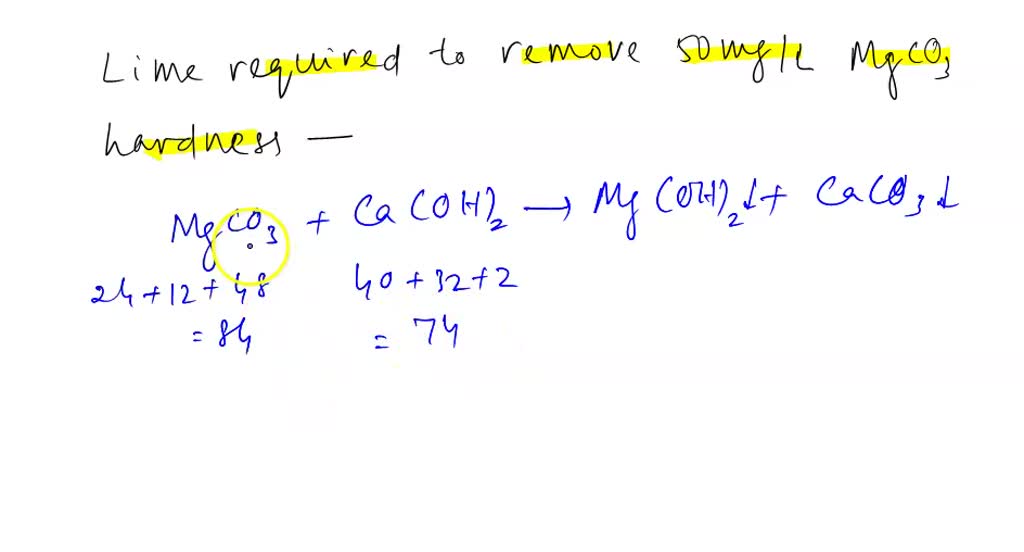 Lime required to remove 50 mg/L MgCO₃
hardness —
MgCO₃ + Ca(OH)₂ → Mg(OH)₂↓ + CaCO₃↓
24+12+48 40+32+2
= 84 = 74